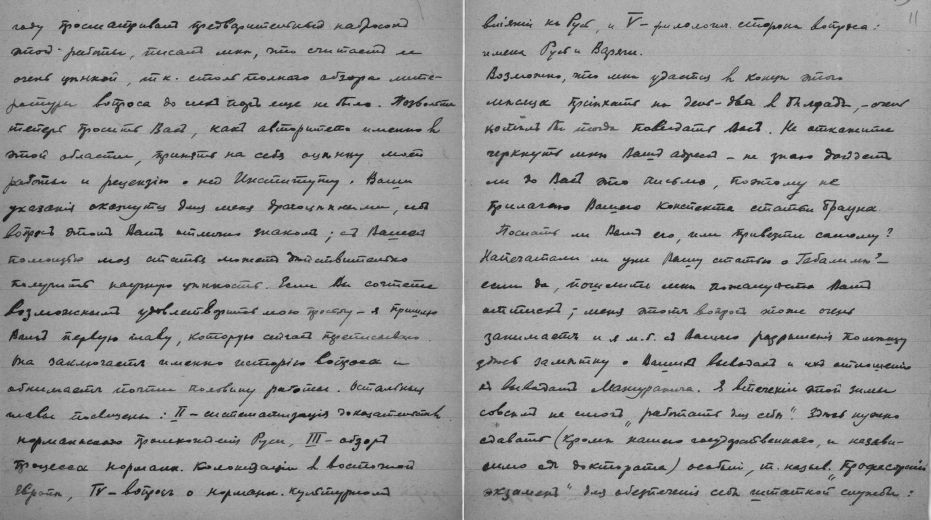 году просматривалъ предварительный набросокъ
этой работы, писалъ мнѣ, что считаетъ ее
очень цѣнной, т.к. столь полнаго обзора лите-
ратуры вопроса до сихъ поръ еще не было. Позвольте
теперь просить Васъ, какъ авторитета именно въ
этой области, принять на себя оцѣнку моей
работы и рецензію о ней Институту. Ваши
указанія окажутся для меня драгоцѣнными, ибо
вопросъ этотъ Вамъ отлично знакомъ; съ Вашей
помощью моя статья можетъ дѣйствительно
получить научную цѣнность. Если Вы сочтете
возможнымъ удовлетворить мою просьбу – я пришлю
Вамъ первую главу, которую сейчасъ переписываю.
Она заключаетъ именно исторію вопроса и
обнимаетъ почти половину работы. Остальныя
главы посвящены: II – систематизація доказательствъ
норманскаго происхожденія Руси, III – обзоръ
процесса норманн. колонизаціи въ восточной
Европѣ, IV – вопросъ о норманн. культурномъ
11
вліяніи на Русь, и V – филологич. сторона вопроса:
имена Русь и Варяги.
Возможно, что мнѣ удастся въ концѣ этого
мѣсяца пріѣхать на день-два въ Бѣлградъ, – очень
хотѣлъ бы тогда повидать Васъ. Не откажите
черкнуть мнѣ Вашъ адресъ – не знаю дойдетъ
ли до Васъ это письмо, поэтому не
прилагаю Вашего конспекта статьи Брауна.
Послать ли Вамъ его, или привезти самому?
Напечатали ли уже Вашу статью о Габалимѣ? –
если да, пошлите мнѣ пожалуйста Вашъ
оттискъ; меня этотъ вопросъ тоже очень
занимаетъ и я м.б. съ Вашего разрѣшенія помѣщу
здѣсь замѣтку о Вашихъ выводахъ и ихъ отношеніи
къ выводамъ Мажуранича. Я втеченіе этой зимы
совсѣмъ не смогъ "работать для себя". Здѣсь нужно
сдавать (кромѣ нашего государственнаго, и незави-
симо отъ доктората) особый, т. назыв. "Профессорскій
экзаменъ" для обезпеченія себѣ штатной службы: